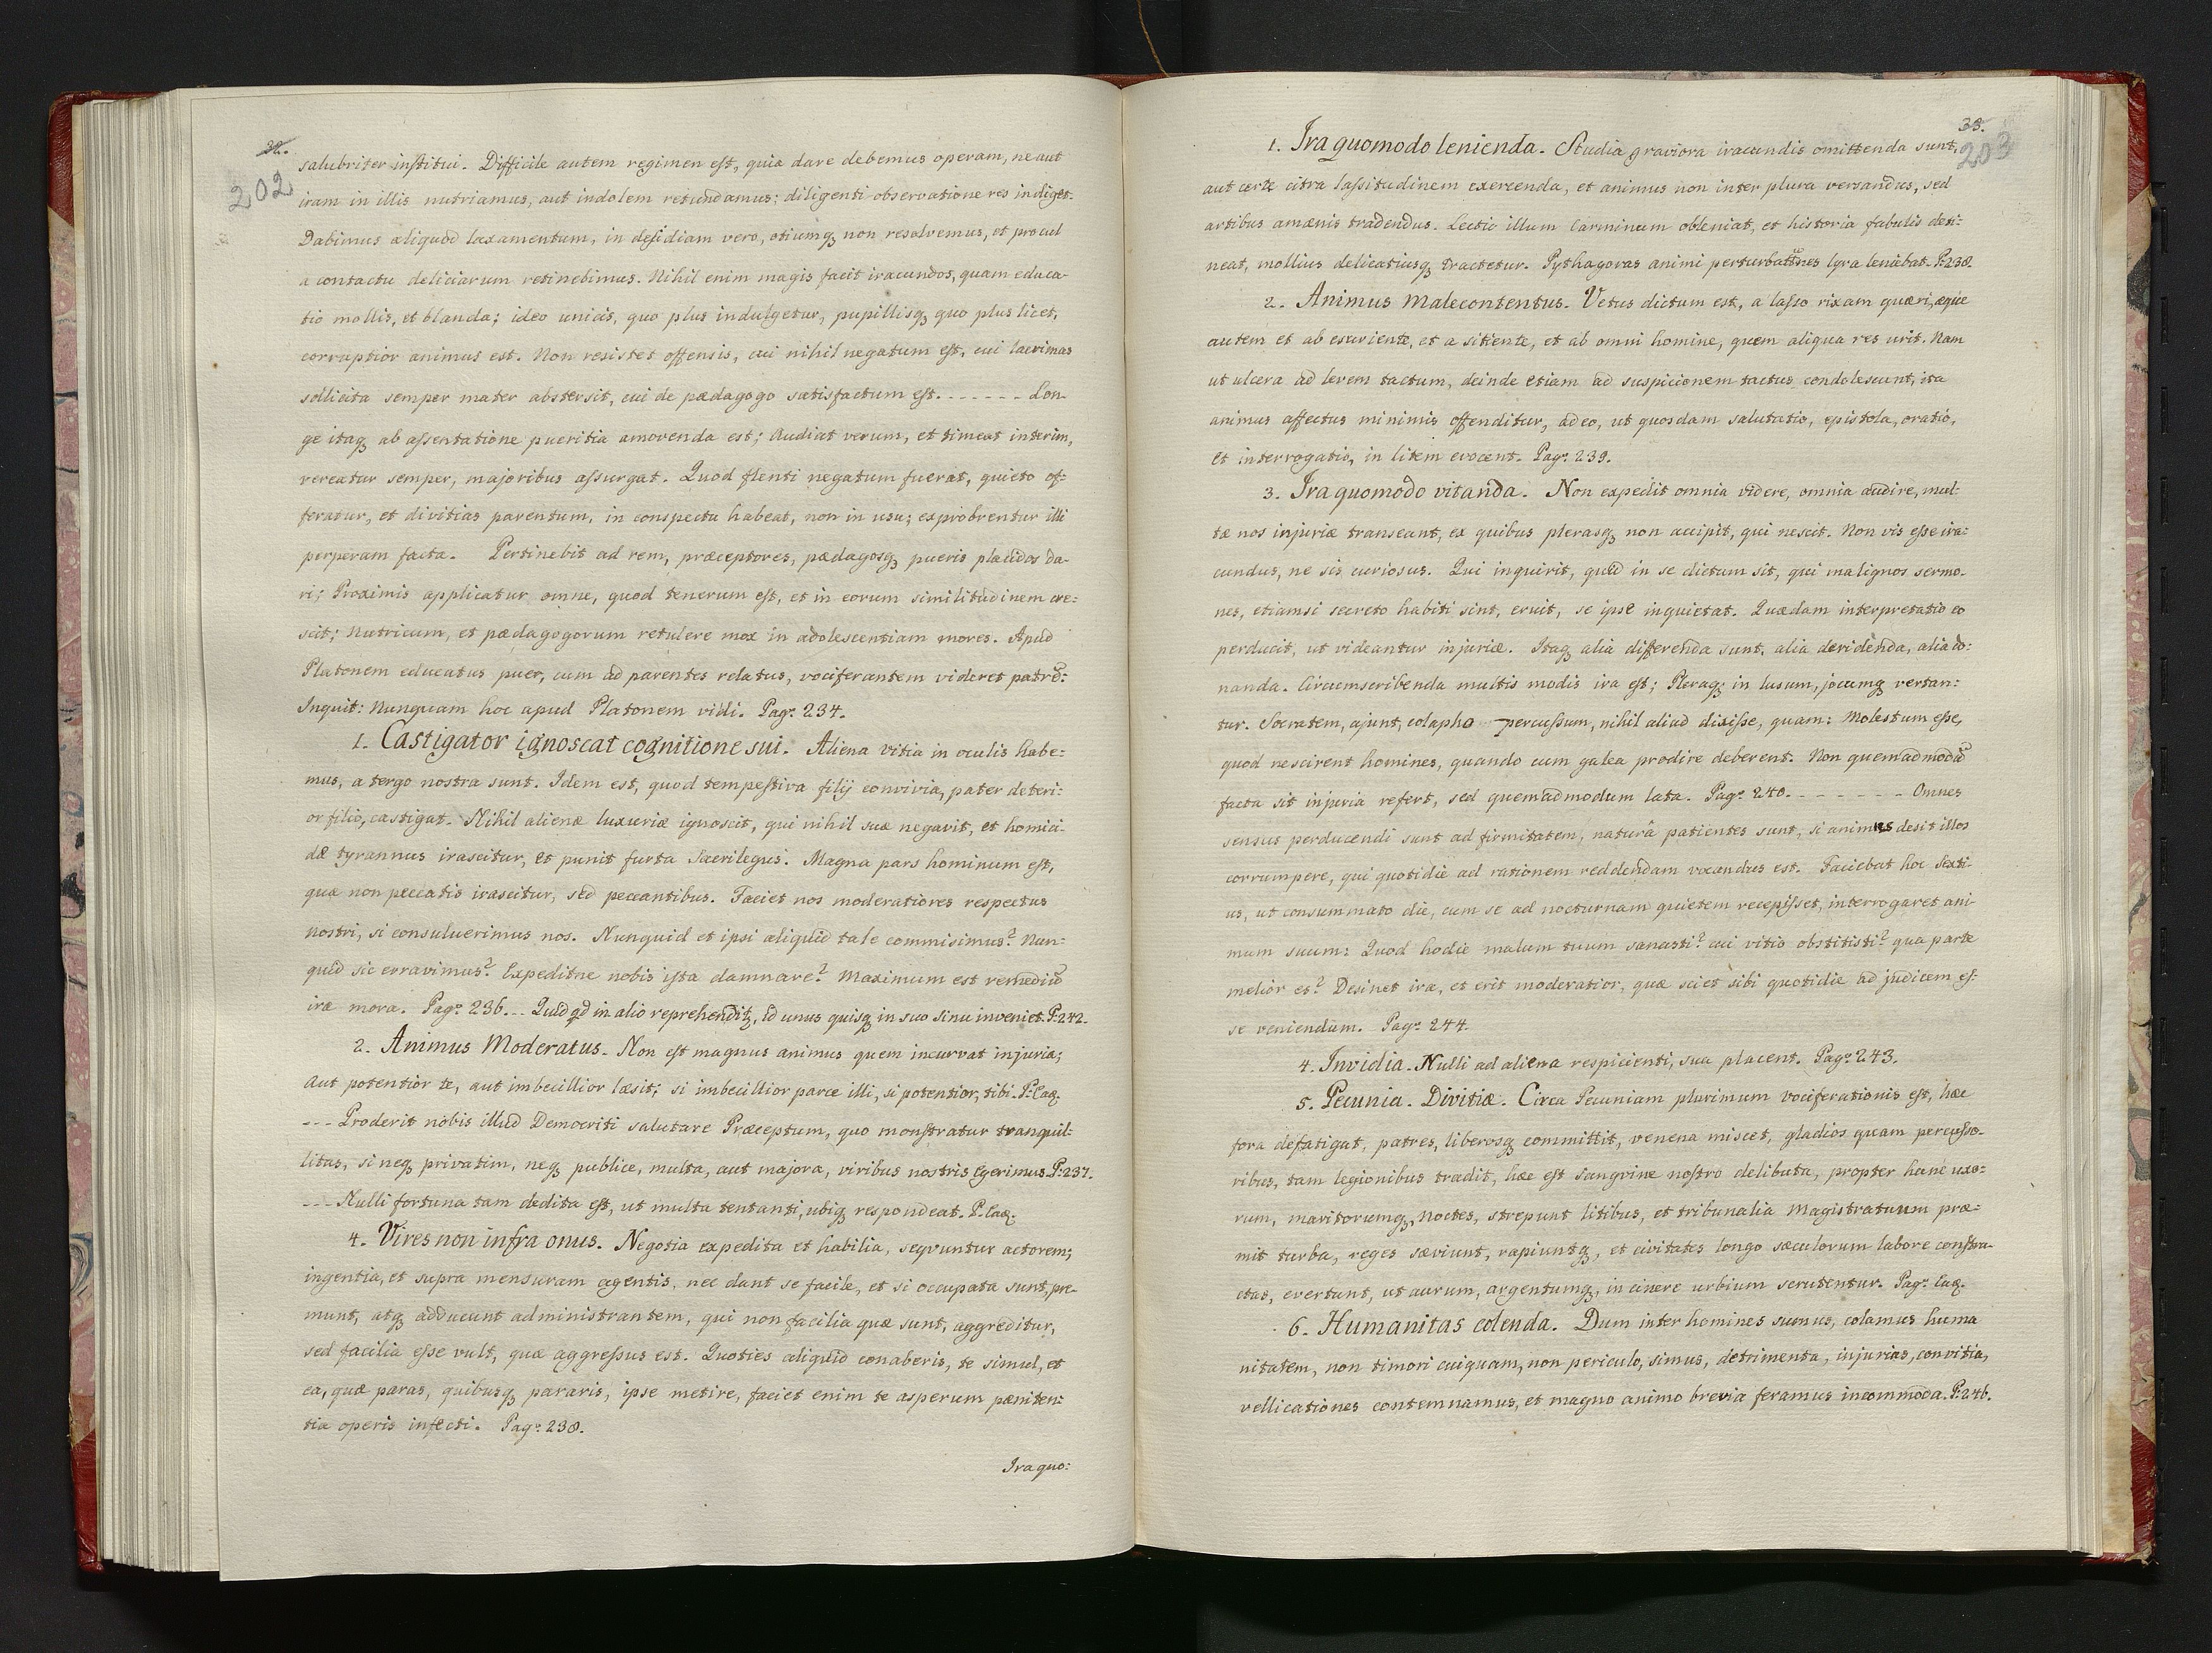 32.
202
salubriter institui. Difficile autem regimen est, quia dare debemus operam, ne aut
iram in illis nutriamus, aut indolem retundamus; diligenti observatione res indiget.
Dabimus aliquod laxamentum, in desidiam vero, otiumq₃ non resolvemus, et procul
a contactu deliciarum retinebimus. Nihil enim magis facit iracundos, quam educa-
tio mollis, et blanda; ideo unicis, quo plus indulgetur, pupillisq₃ quo plus licet,
corruptior animus est. Non resistet offensis, cui nihil negatum est, cui lacrimas
sollicita semper mater abstersit, cui de pædagogo satisfactum est. - - - - - - Lon-
ge itaq₃ ab assentatione pueritia amovenda est; Audiat verum, et timeat interim,
vereatur semper, majoribus assurgat. Quod flenti negatum fuerat, quieto of:
feratur, et divitias parentum, in conspectu habeat, non in usu; exprobrentur illi
perperam facta. Pertinebit ad rem, præceptores, pædagosq₃ pueris placidos da-
ri; Proximis applicatur omne, quod tenerum est, et in eorum similitudinem cre:
scit; Nutricum, et pædagogorum retulere mox in adolescentiam mores. Apud
Platonem educatus puer, cum ad parentes relatus, vociferantem videret patrē:
Inquit: Nunquam hoc apud Platonem vidi. Pag: 234.
1. Castigator ignoscat cognitione sui. Aliena vitia in oculis habe:
mus, a tergo nostra sunt. Idem est, quod tempestiva filij convivia, pater deteri:
or filio, castigat. Nihil alienæ luxuriæ ignoscit, qui nihil suæ negavit, et homici-
dæ tyrannus irascitur, et punit furta Sacrilegus. Magna pars hominum est,
qua non peccatis irascitur, sed peccantibus. Faciet nos moderatiores respectus
nostri, si consuluerimus nos. Nunquid et ipsi aliquid tale commisimus? Nun:
quid sic erravimus? Expeditne nobis ista damnare? Maximum est remediū
iræ mora. Pag: 236. - - Quidqd in alio reprehendit₃, id unus quisq₃ in suo sinu inveniet. P: 242.
2. Animus Moderatus. Non est magnus animus quem incurvat injuria;
Aut potentior te, aut imbecillior læsit; si imbecillior parce illi, si potentior, tibi. P: Eaq₃.
- - - Proderit nobis illud Democriti salutare Præceptum, quo monstratur tranquil:
litas, si neq₃ privatim, neq₃ publice, multa, aut majora, viribus nostris Egerimus. P: 237.
- - - Nulli fortuna tam dedita est, ut multa tentanti, ubiq₃ respondeat. P. Eaq₃.
4. Vires non infra onus. Negotia expedita et habilia, seqvuntur actorem;
ingentia, et supra mensuram agentis, nec dant se facile, et si occupata sunt, pre-
munt, atq₃ adducunt administrantem, qui non facilia quæ sunt, aggreditur,
sed facilia esse vult, quæ aggressus est. Quoties aliquid conaberis, te simul, et
ea, quæ paras, quibusq₃ pararis, ipse metire, faciet enim te asperum pæniten:
tia operis infecti. Pag: 238.
Ira quo:
33.
203
1. Ira quomodo lenienda. Studia graviora iracundis omittenda sunt,
aut certe citra lassitudinem exercenda, et animus non inter plura versandus, sed
artibus amænis tradendus. Lectio illum Carminum obleniat, et historia fabulis deti:
neat, mollius delicatiusq₃ tractetur. Pythagoras animi perturbatiōnes lyra leniebat. P: 238.
2. Animus Malecontentus. Vetus dictum est, a lasso rixam quæri, æque
autem et ab esuriente, et a sitiente, et ab omni homine, quem aliqua res urit. Nam
ut ulcera ad levem tactum, deinde etiam ad suspicionem tactus condolescunt, ita
animus affectus minimis offenditur, adeo, ut quosdam salutatio, epistola, oratio,
et interrogatio, in litem evocent. Pag: 239.
3. Ira quomodo vitanda. Non expedit omnia videre, omnia audire, mul:
tæ nos injuriæ transeant, ex quibus plerasq₃ non accipit, qui nescit. Non vis esse ira:
cundus, ne sis curiosus. Qui inquirit, quid in se dictum sit, qui malignos sermo-
nes, etiamsi secreto habiti sint, eruit, se ipse inquietat. Quædam interpretatio eo
perducit, ut videantur injuriæ. Itaq₃ alia differenda sunt, alia deridenda, alia do:
nanda. Circumscribenda multis modis ira est; Pleraq₃ in lusum, jocumq₃ vertan:
tur. Socratem, ajunt, colapho percussum, nihil aliud dixisse, quam: Molestum esse,
quod nescirent homines, quando cum galea prodire deberent. Non quemadmodū
facta sit injuria refert, sed quemadmodum lata. Pag: 240. - - - - - - - Omnes
sensus perducendi sunt ad firmitatem, naturâ patientes sunt, si animus desit illos
corrumpere, qui quotidie ad rationem reddendam vocandus est. Faciebat hoc Sexti-
us, ut consummato die, cum se ad nocturnam quietem recepisset, interrogaret ani-
mum suum: Quod hodie malum tuum sanasti? cui vitio obstitisti? qua parte
melior es? Desinet ira, et erit moderatior, quæ sciet sibi quotidie ad judicem es:
se veniendum. Pag: 244.
4. Invidia. Nulli ad aliena respicienti, sua placent. Pag: 243.
5. Pecunia. Divitiæ. Circa Pecuniam plurimum vociferationis est, hæc
fora defatigat, patres, liberosq₃ committit, venena miscet, gladios quam percusso-
ribus, tam legionibus tradit, hæc est Sangvine nostro delibuta, propter hanc uxo:
rum, maritorumq₃, noctes, strepunt litibus, et tribunalia Magistratuum præ:
mit turba, reges sæviunt, rapiuntq₃, et civitates longo sæculorum labore constru-
ctas, evertunt, ut aurum, argentumq₃, in cinere urbium scrutentur. Pag: Eaq₃.
6. Humanitas colenda. Dum inter homines sumus, colamus huma
nitatem, non timori cuiquam, non periculo, simus, detrimenta, injurias, convitia,
vellicationes contemnamus, et magno animo brevia feramus incommoda. P: 246.